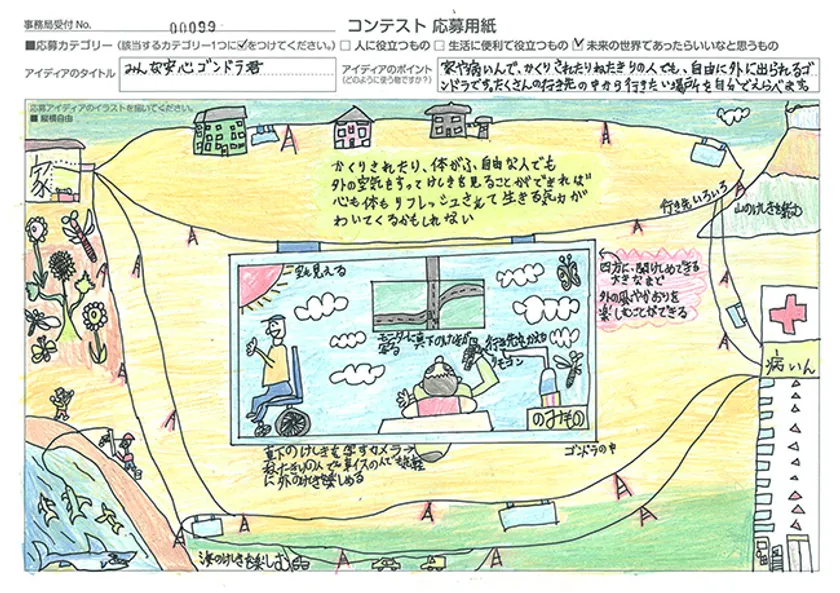 事務局受付 No. 00099
コンテスト 応募用紙
■応募カテゴリー（該当するカテゴリー1つに✓をつけてください。） □ 人に役立つもの □ 生活に便利で役立つもの ☑ 未来の世界であったらいいなと思うもの
アイディアのタイトル
みんな安心ゴンドラ君
アイディアのポイント
（どのように使う物ですか？）
家や病いんで、かくりされたりねたきりの人でも、自由に外に出られるゴ
ンドラです。たくさんの行き先の中から行きたい場所を自分でえらべます
応募アイディアのイラストを描いてください。
■ 縦横自由
家
かくりされたり、体がふ自由な人でも
外の空気をすってけしきを見ることができれば
心も体もリフレッシュされて生きる気力が
わいてくるかもしれない
行き先いろいろ
山のけしきを楽む
空も見える
四方に、開けしめできる
大きなまど
外の風やかおりを
楽しむことができる
モニターに真下のけしきが
行き先を
リモコン
のみもの
病いん
ゴンドラの中
真下のけしきを写すカメラ
ねたきりの人でも車イスの人でも
に外のけしきを楽しめる
海のけしきを楽しむ